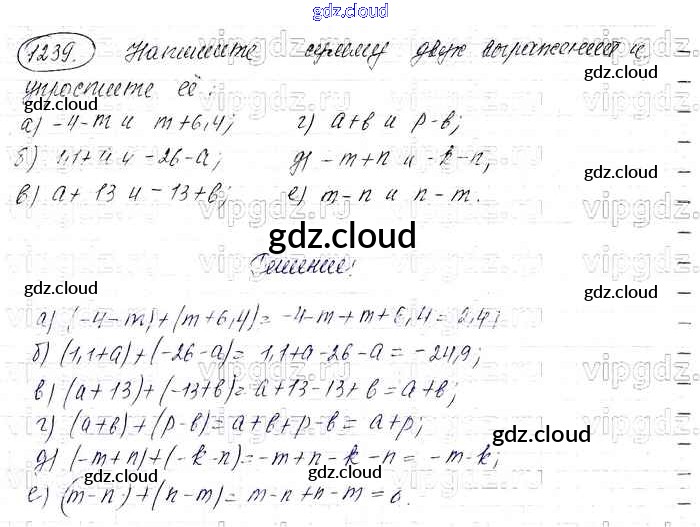 gdz.cloud
1239. Напишите сумму двух выражений и
упростите её:
а) -4-m и m+6,4; г) а+в и р-в;
б) 1,1+а и -26-а; д) -m+n и -k-n;
в) а+ 13 и -13+в; е) m-n и n-m.
Решение:
а) (-4-m)+(m+6,4)= -4-m+m+6,4=2,4;
б) (1,1+а)+(-26-а)= 1,1+а-26-а= -24,9;
в) (а+13)+(-13+в)=а+13-13+в=а+в;
г) (а+в)+(р-в)=а+в+р-в= а+р;
д) (-m+n)+(-k-n)=-m+n-k-n= -m-k;
е) (m-n)+(n-m)= m-n+n-m=0.
gdz.cloud
gdz.cloud
gdz.cloud
gdz.cloud
gdz.cloud
gdz.cloud
gdz.cloud
gdz.cloud
gdz.cloud
gdz.cloud
gdz.cloud